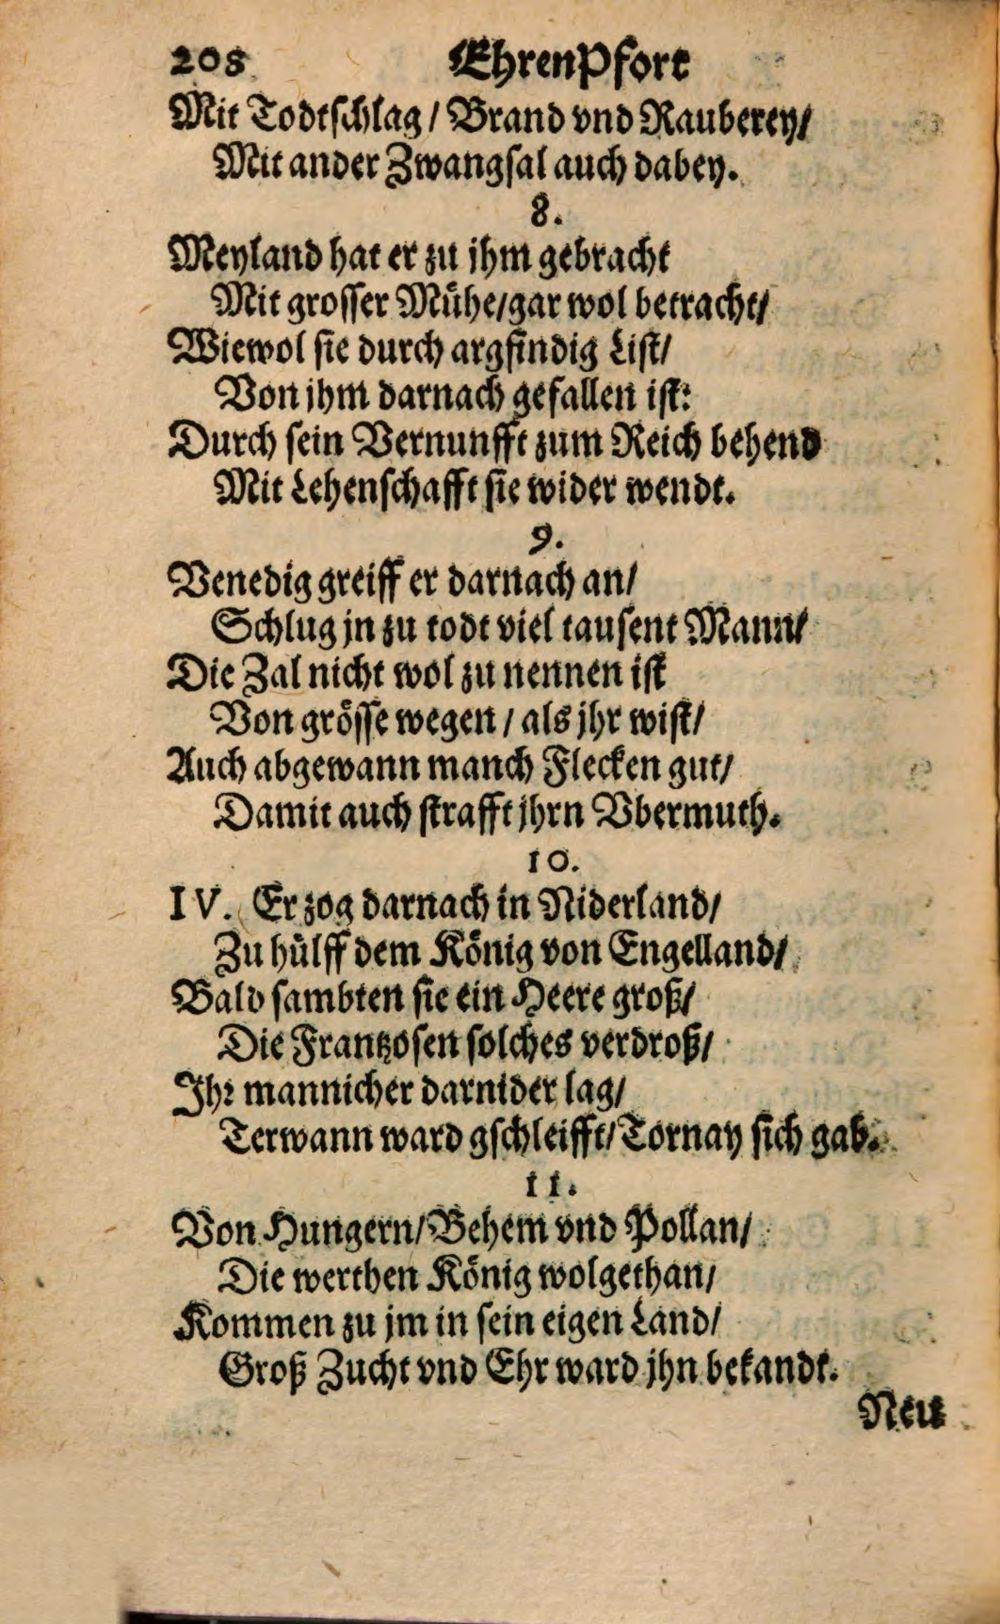 208 EhrenPfort
Mit Todtschlag / Brand vnd Rauberey/
Mit ander Zwangsal auch dabey.
8.
Meyland hat er zu jhm gebracht
Mit grosser Mühe/gar wol betracht/
Wiewol sie durch argfindig List/
Von jhm darnach gefallen ist:
Durch sein Vernunfft zum Reich behend
Mit Lehenschafft sie wider wendt.
9.
Venedig greiff er darnach an/
Schlug jn zu todt viel tausent Mann/
Die Zal nicht wol zu nennen ist
Von grösse wegen / als jhr wist/
Auch abgewann manch Flecken gut/
Damit auch strafft jhrn Vbermuth.
10.
IV. Er zog darnach in Niderland/
Zu hülff dem König von Engelland/
Bald sambten sie ein Heere groß/
Die Frantzosen solches verdroß/
Jhr mannicher darnider lag/
Terwann ward gschleifft/Tornay sich gab.
11.
Von Hungern/Behem vnd Pollan/
Die werthen König wolgethan/
Kommen zu jm in sein eigen Land/
Groß Zucht vnd Ehr ward jhn bekandt.
Neu